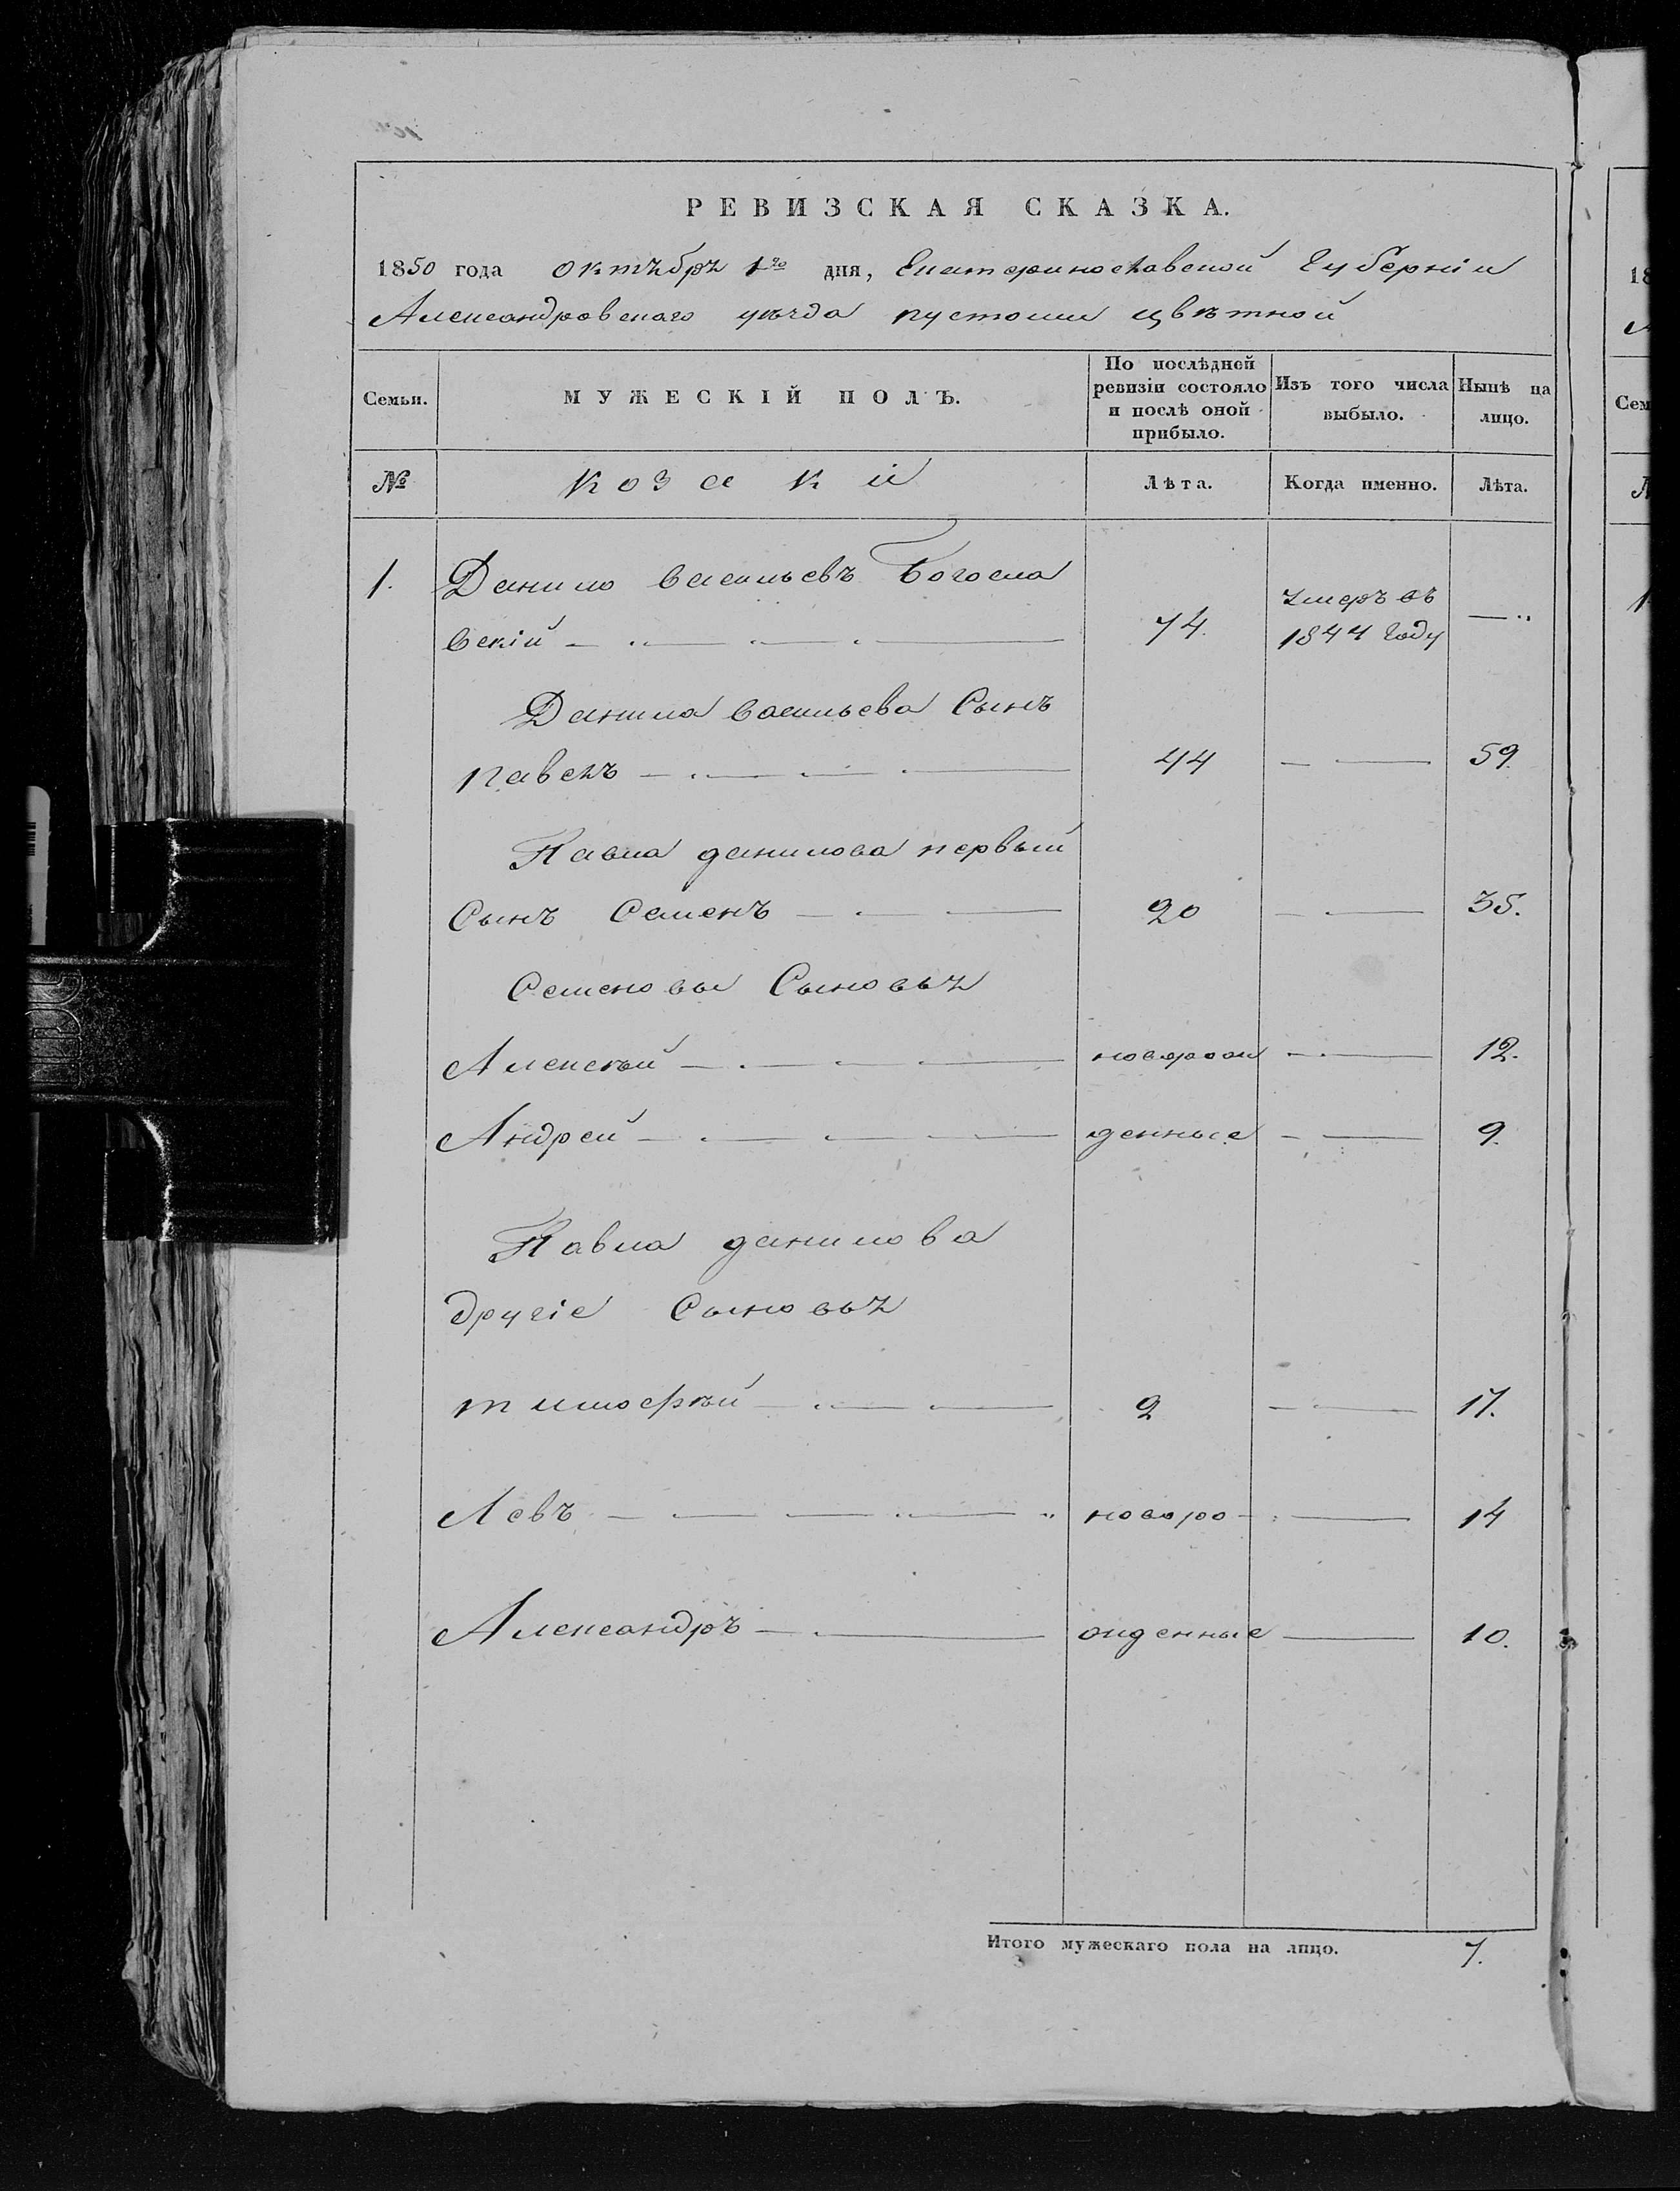 РЕВИЗСКАЯ СКАЗКА.
1850 года октября 1го дня, Екатеринославской Губерніи
Александровскаго уѣзда пустоши цвѣтной
Семьи. МУЖЕСКІЙ ПОЛЪ. По послѣдней ревизіи состояло и послѣ оной прибыло. Изъ того числа выбыло. Нынѣ на лицо.
№ козаки Лѣта. Когда именно. Лѣта.
1. Данило Васильевъ Богосла
вскій 74. умеръ въ 1844 году —
Данила Васильева Сынъ
павелъ 44 — 59.
Павла данилова первый
Сынъ Семенъ 20 — 35.
Семеновы Сыновья
Алексѣй новорож — 12.
Андрей денные — 9.
Павла данилова
другіе Сыновья
тимофѣй 2 — 17.
Левъ новоро — 14
Александръ жденные — 10.
Итого мужескаго пола на лицо. 7.
18
Сем
№
1